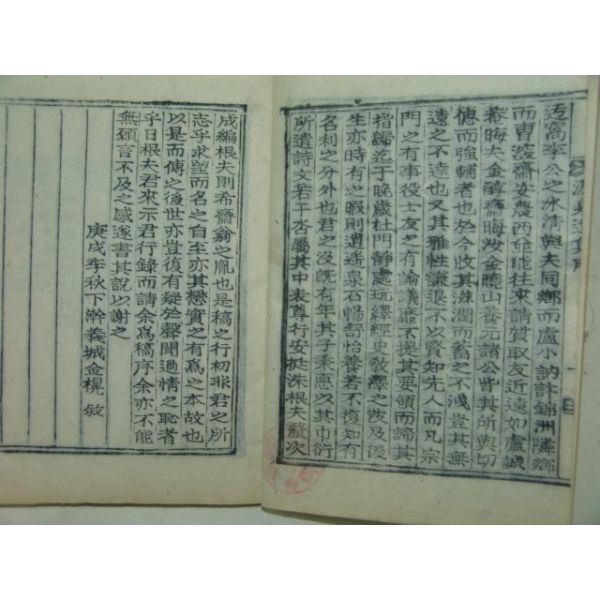 萵李公之泳淸與夫同鄕而盧小訥許錦洲隣鄕
而曺深齋姜農西皆能往來請質取友近遠如盧誠
菴晦夫金醇齋晦汝金曉山養元諸公皆其所與切
偲而強輔者也於今收其滋潤而蓄之不洩豈其無
遠之不達也又其雅性謙退不以賢知先人而凡宗
門之有事役士友之有論議靡不提其要領而諦其
指歸迄于晩歲杜門靜處玩繹經史敎繹之波及後
生亦時有之暇則逍遙泉石暢舒怡養若不復知有
名利之分外也君之沒旣有年其子秉悳以其巾衍
所遺詩文若干呇屬其中表尊行安挺洙根夫登次
成編根夫則希齋翁之胤也是稿之行初非君之所
志乎求望而名之自至亦其懋實之有爲之本故也
以是而傳之後世亦豈復有疑於聲聞過情之恥者
乎日根夫君來示君行錄而請余爲稿序余亦不能
無頷言不及之感遂書其說以謝之
庚戌季秋下澣義城金榥敬